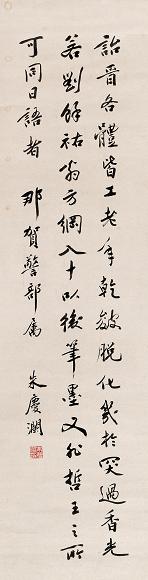 詒晉各體皆工老年乾皴脫化幾於突過香光
若劉餘祐翁方綱八十以後筆墨又非哲王之所
可同日語者 那賀警部屬
朱慶瀾